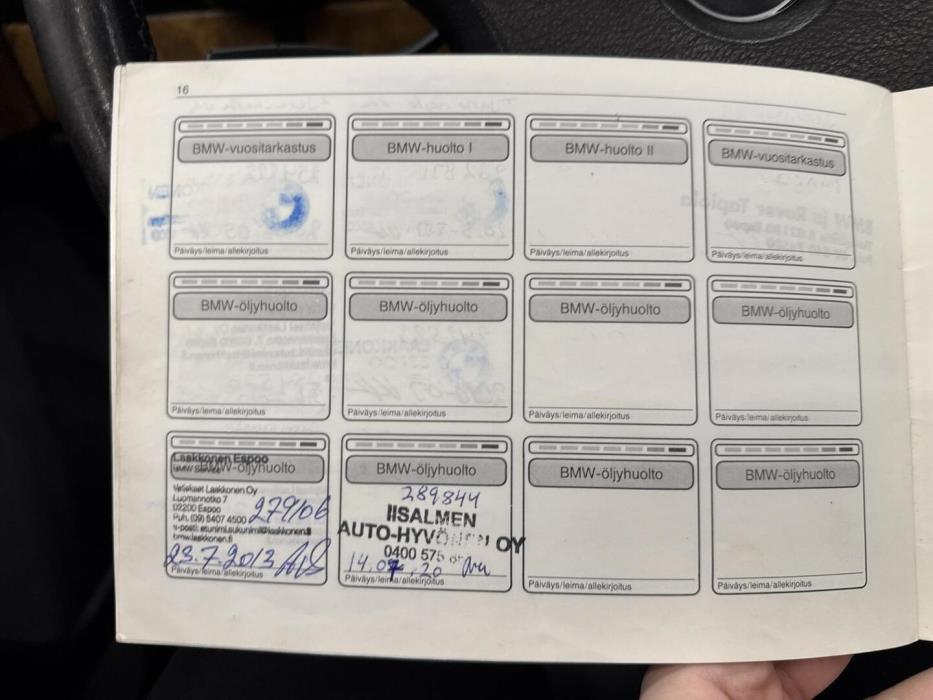 16
BMW-vuositarkastus
Päiväys/leima/allekirjoitus
BMW-huolto I
Päiväys/leima/allekirjoitus
BMW-huolto II
Päiväys/leima/allekirjoitus
BMW-vuositarkastus
Päiväys/leima/allekirjoitus
BMW-öljyhuolto
Päiväys/leima/allekirjoitus
BMW-öljyhuolto
Päiväys/leima/allekirjoitus
BMW-öljyhuolto
Päiväys/leima/allekirjoitus
BMW-öljyhuolto
Päiväys/leima/allekirjoitus
Laakkonen Espoo
BMW Service
BMW-öljyhuolto
Veljekset Laakkonen Oy
Luomannotko 7
02200 Espoo
Puh. (09) 5407 4500
279106
s-posti: etunimi.sukunimi@laakkonen.fi
bmw.laakkonen.fi
23.7.2013
Päiväys/leima/allekirjoitus
BMW-öljyhuolto
289844
IISALMEN
AUTO-HYVÖNEN OY
0400 575
14.07.20
Päiväys/leima/allekirjoitus
BMW-öljyhuolto
Päiväys/leima/allekirjoitus
BMW-öljyhuolto
Päiväys/leima/allekirjoitus